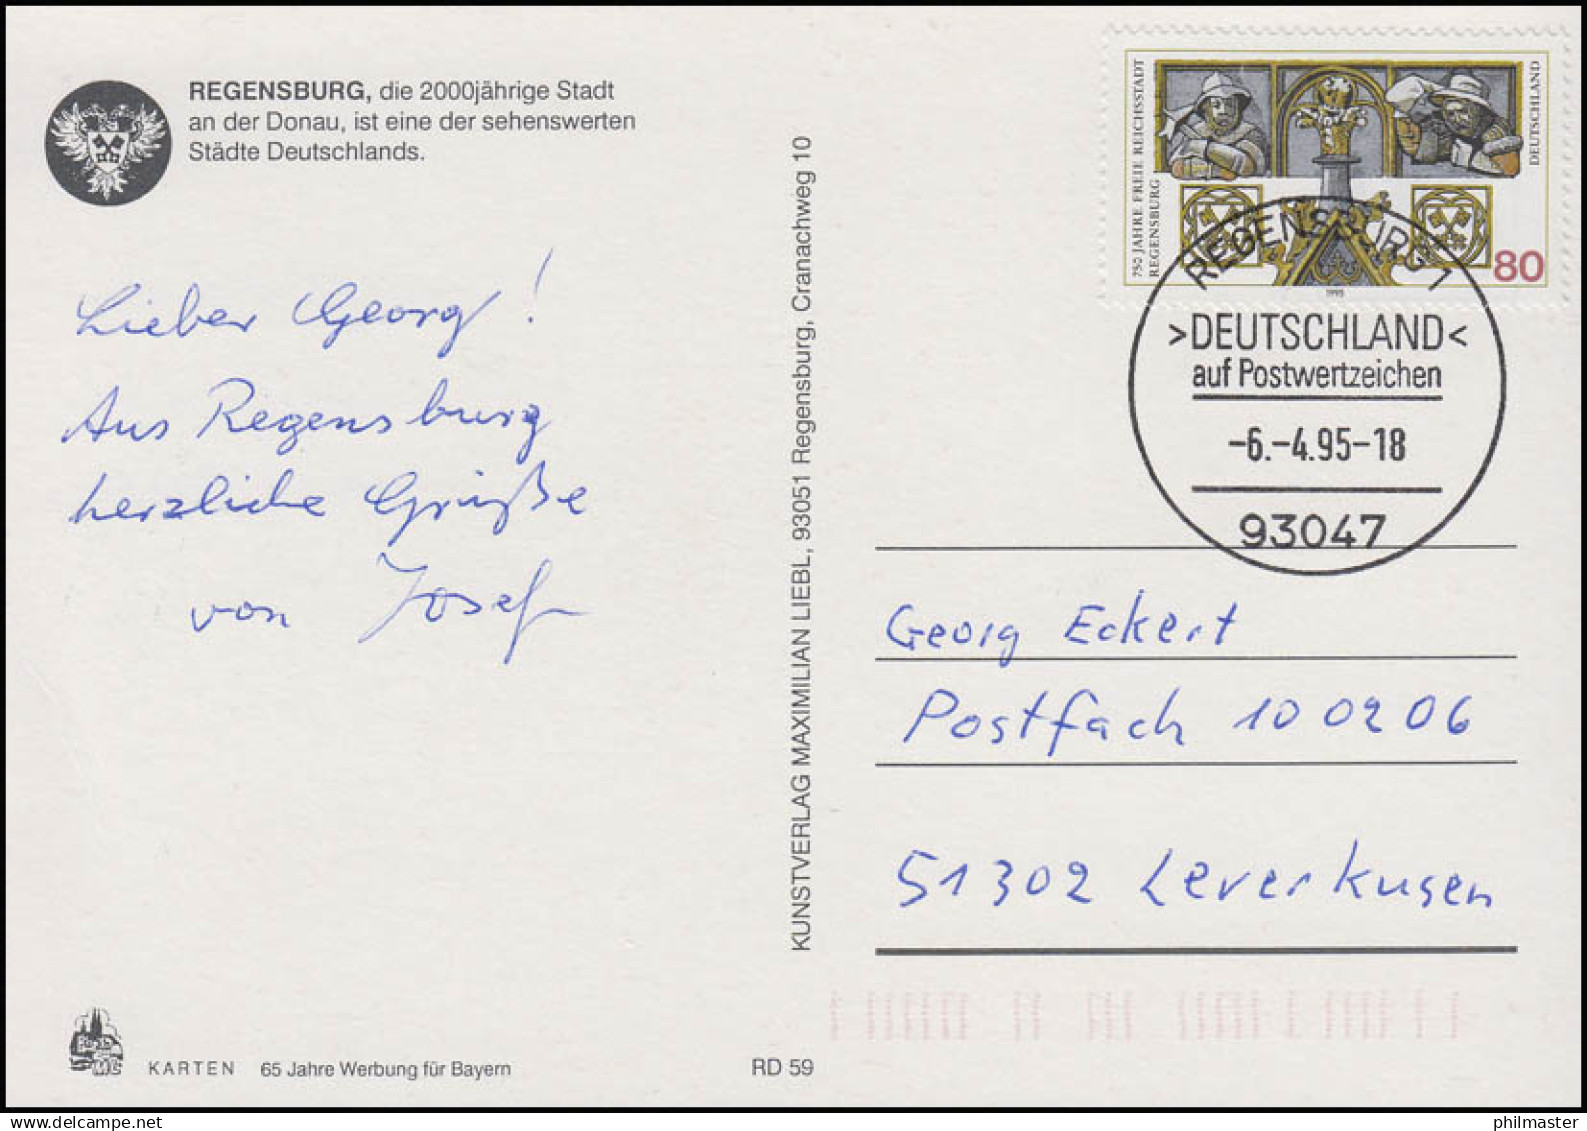 REGENSBURG, die 2000jährige Stadt
an der Donau, ist eine der sehenswerten
Städte Deutschlands.
Lieber Georg!
Aus Regensburg
herzliche Grüße
von Josef
KARTEN
65 Jahre Werbung für Bayern
RD 59
KUNSTVERLAG MAXIMILIAN LIEBL, 93051 Regensburg, Cranachweg 10
750 JAHRE FREIE REICHSSTADT
REGENSBURG
DEUTSCHLAND
80
1995
REGENSBURG 1
>DEUTSCHLAND<
auf Postwertzeichen
-6.-4.95-18
93047
Georg Eckert
Postfach 10 02 06
51302 Leverkusen
philmaster